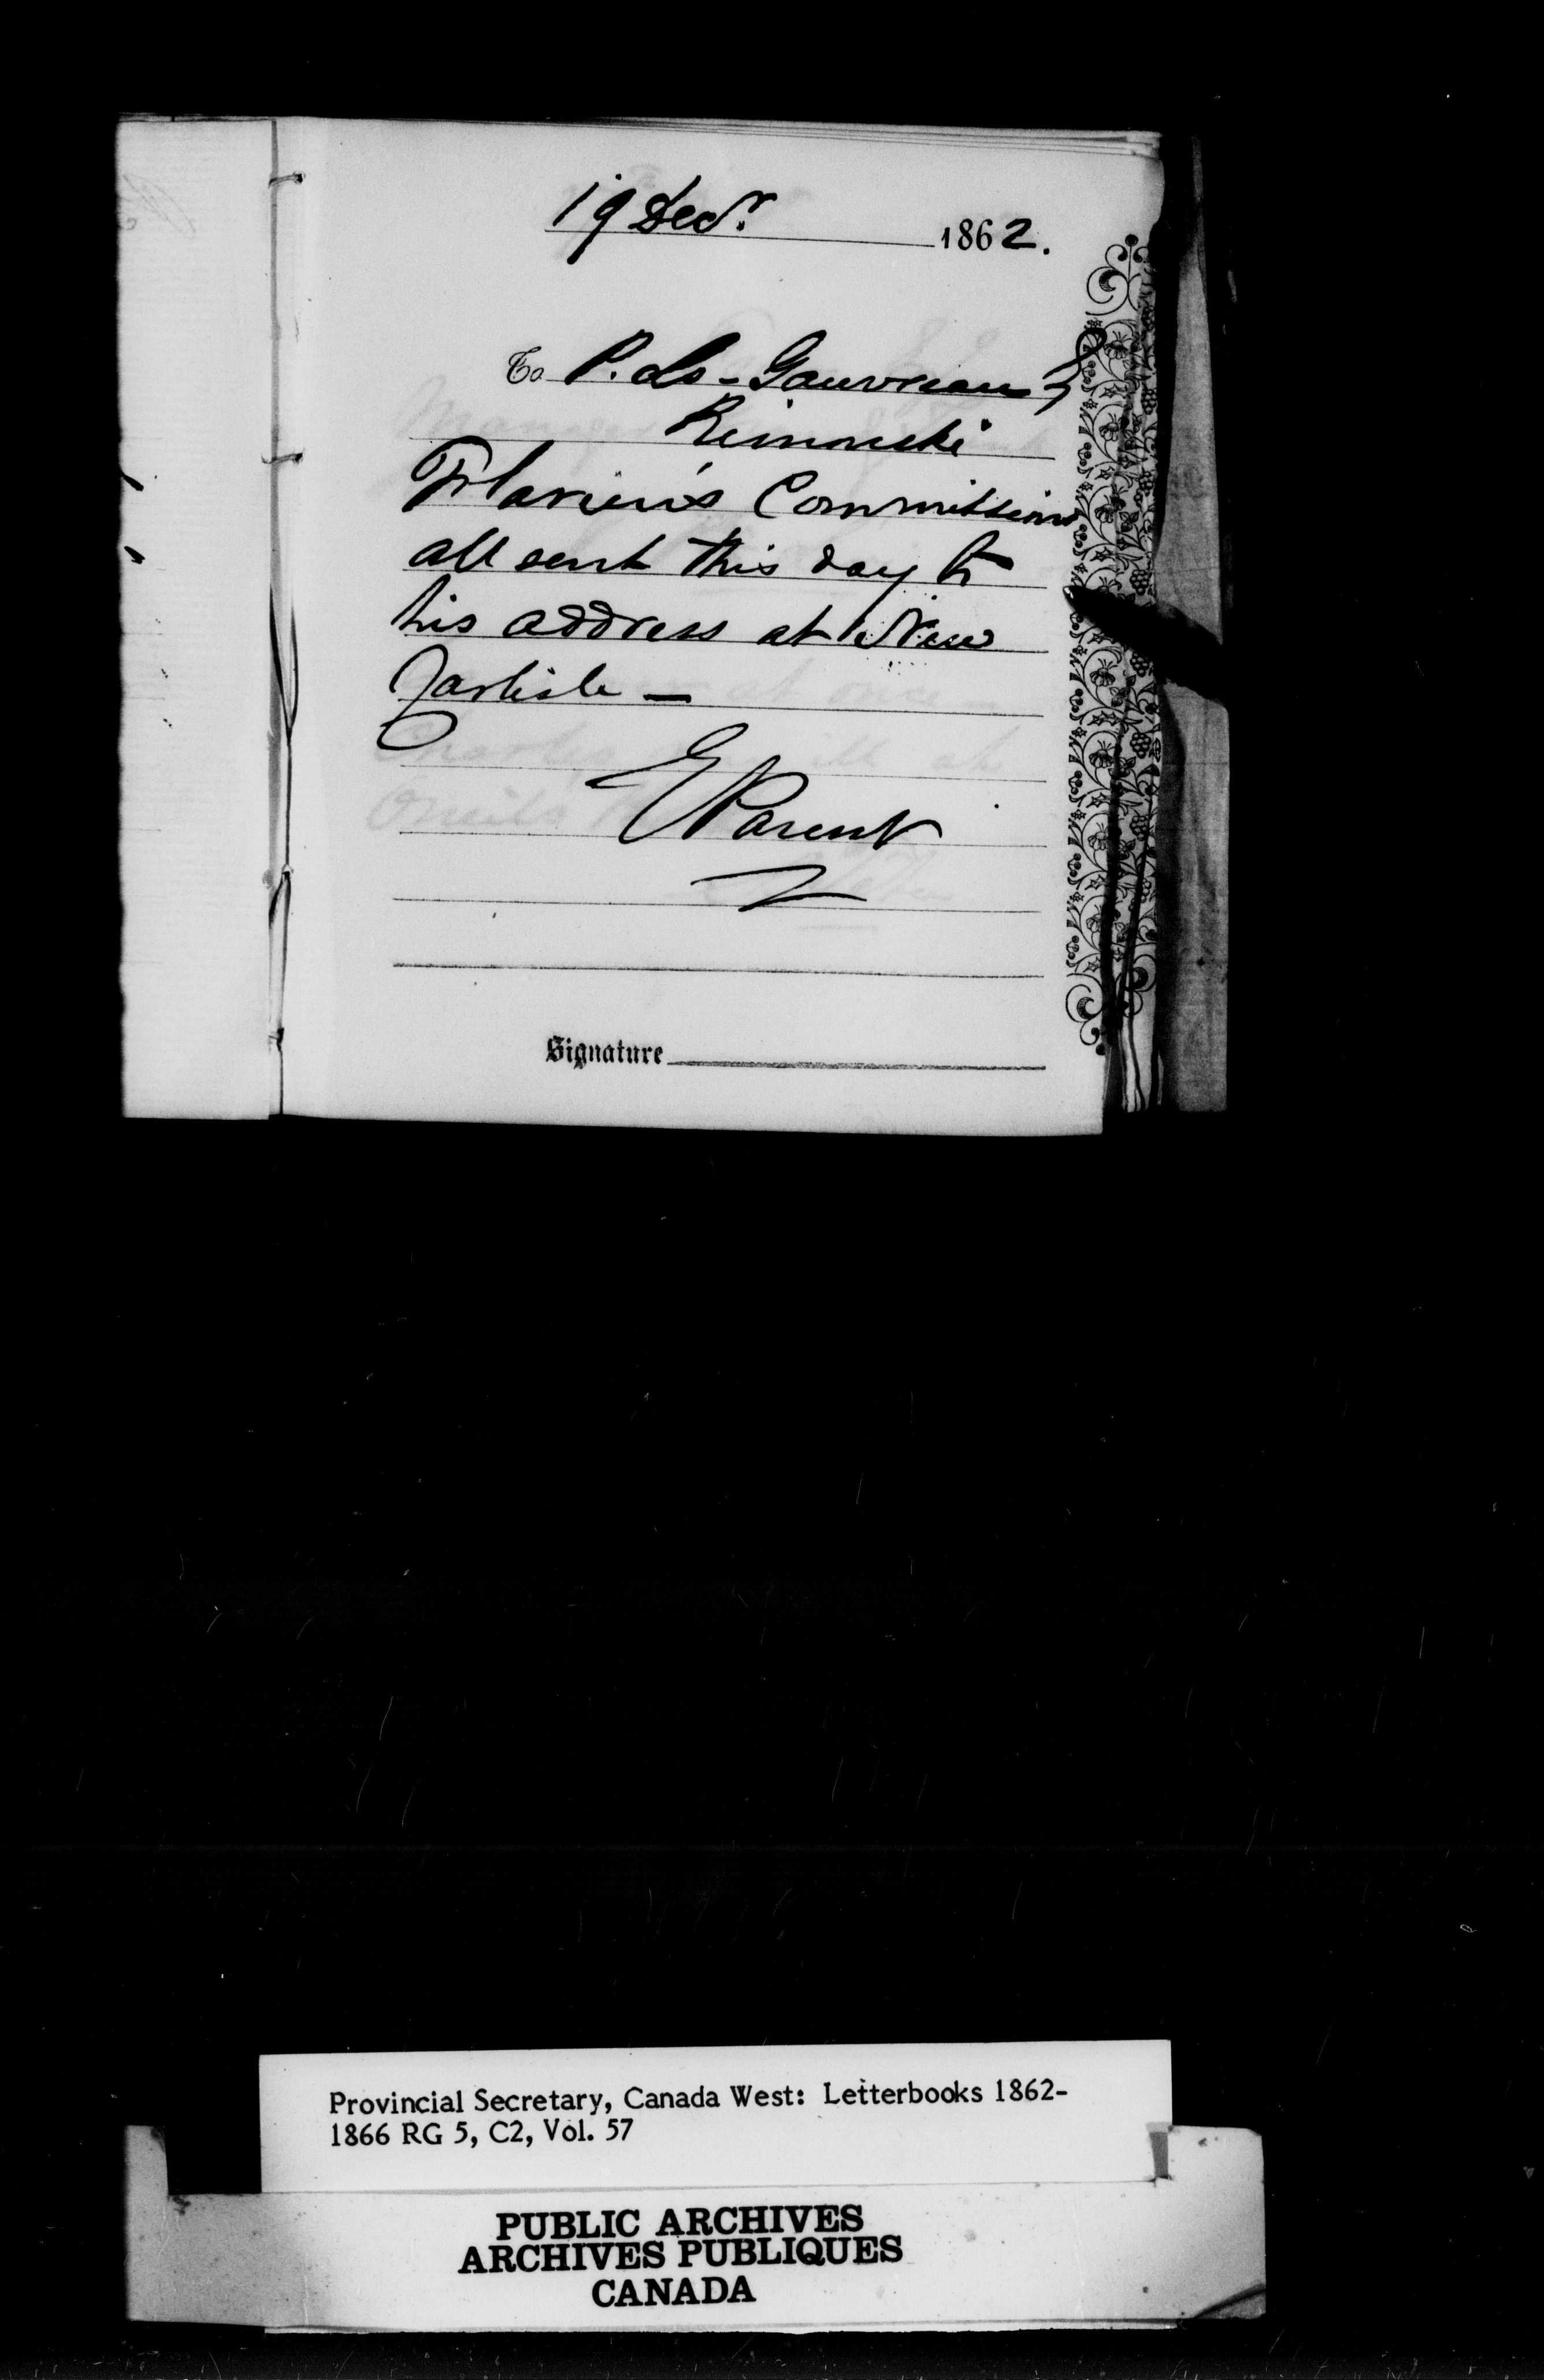 19 Decr. 1862.
To P. Ls - Gauvreau
Rimouski
Flavien's Commissions
all sent this day to
his address at New
Carlisle —
E Parent
Signature
Provincial Secretary, Canada West: Letterbooks 1862-
1866 RG 5, C2, Vol. 57
PUBLIC ARCHIVES
ARCHIVES PUBLIQUES
CANADA